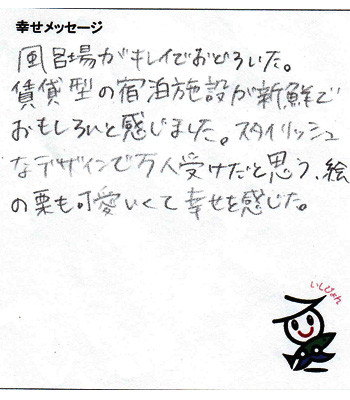 幸せメッセージ
風呂場がキレイでおどろいた。
賃貸型の宿泊施設が新鮮で
おもしろいと感じました。スタイリッシュ
なデザインで万人受けだと思う、絵
の栗も可愛いくて幸せを感じた。